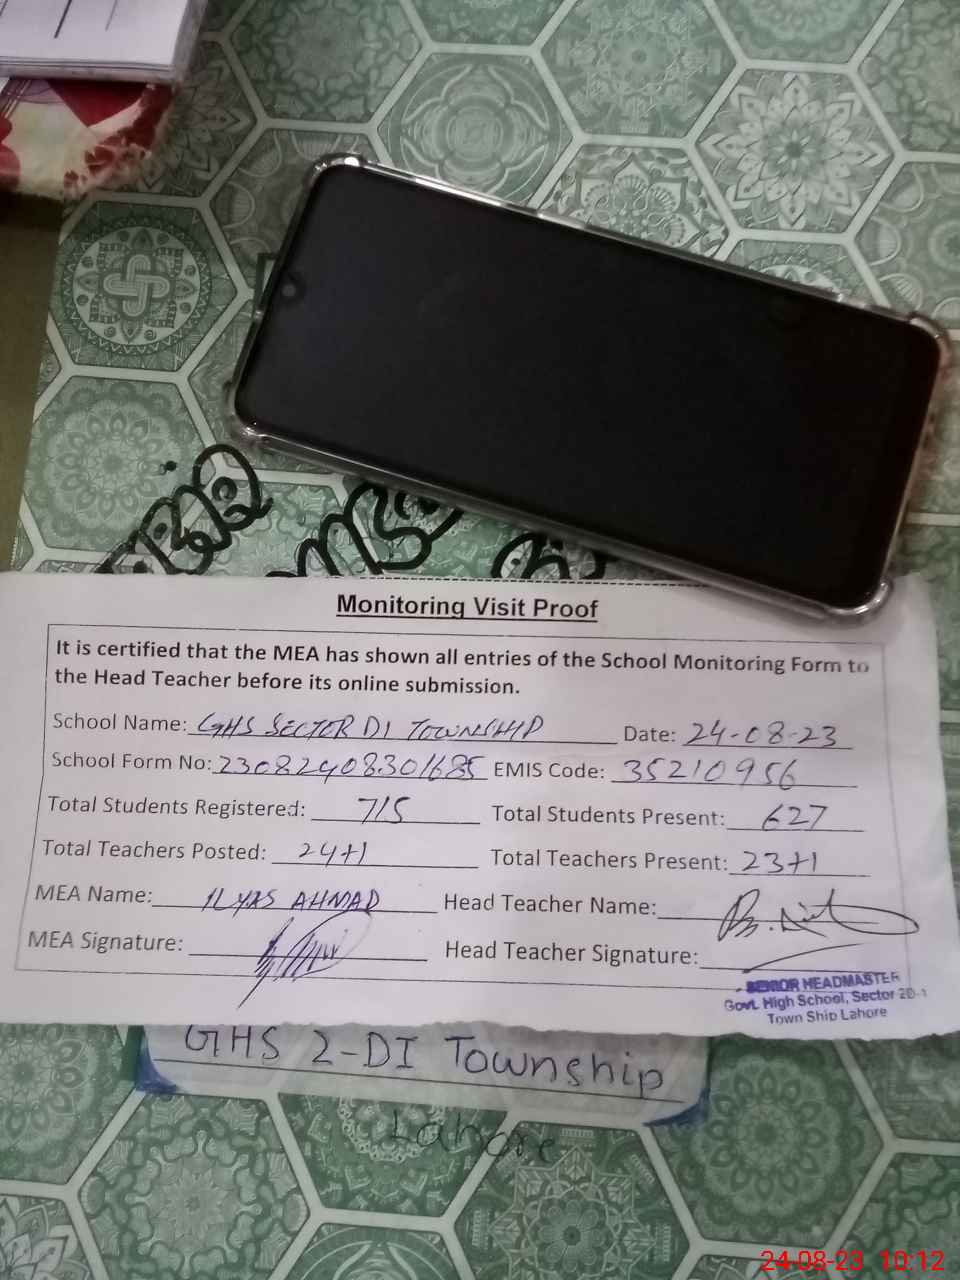 Monitoring Visit Proof
It is certified that the MEA has shown all entries of the School Monitoring Form to
the Head Teacher before its online submission.
School Name: GHS SECTOR D1 TOWNSHIP Date: 24-08-23
School Form No: 23082408301685 EMIS Code: 35210956
Total Students Registered: 715 Total Students Present: 627
Total Teachers Posted: 24+1 Total Teachers Present: 23+1
MEA Name: ILYAS AHMAD Head Teacher Name:
MEA Signature: Head Teacher Signature:
SENIOR HEADMASTER
Govt. High School, Sector 2D-1
Town Ship Lahore
GHS 2-D1 Township
Lahore
24-08-23 10:12